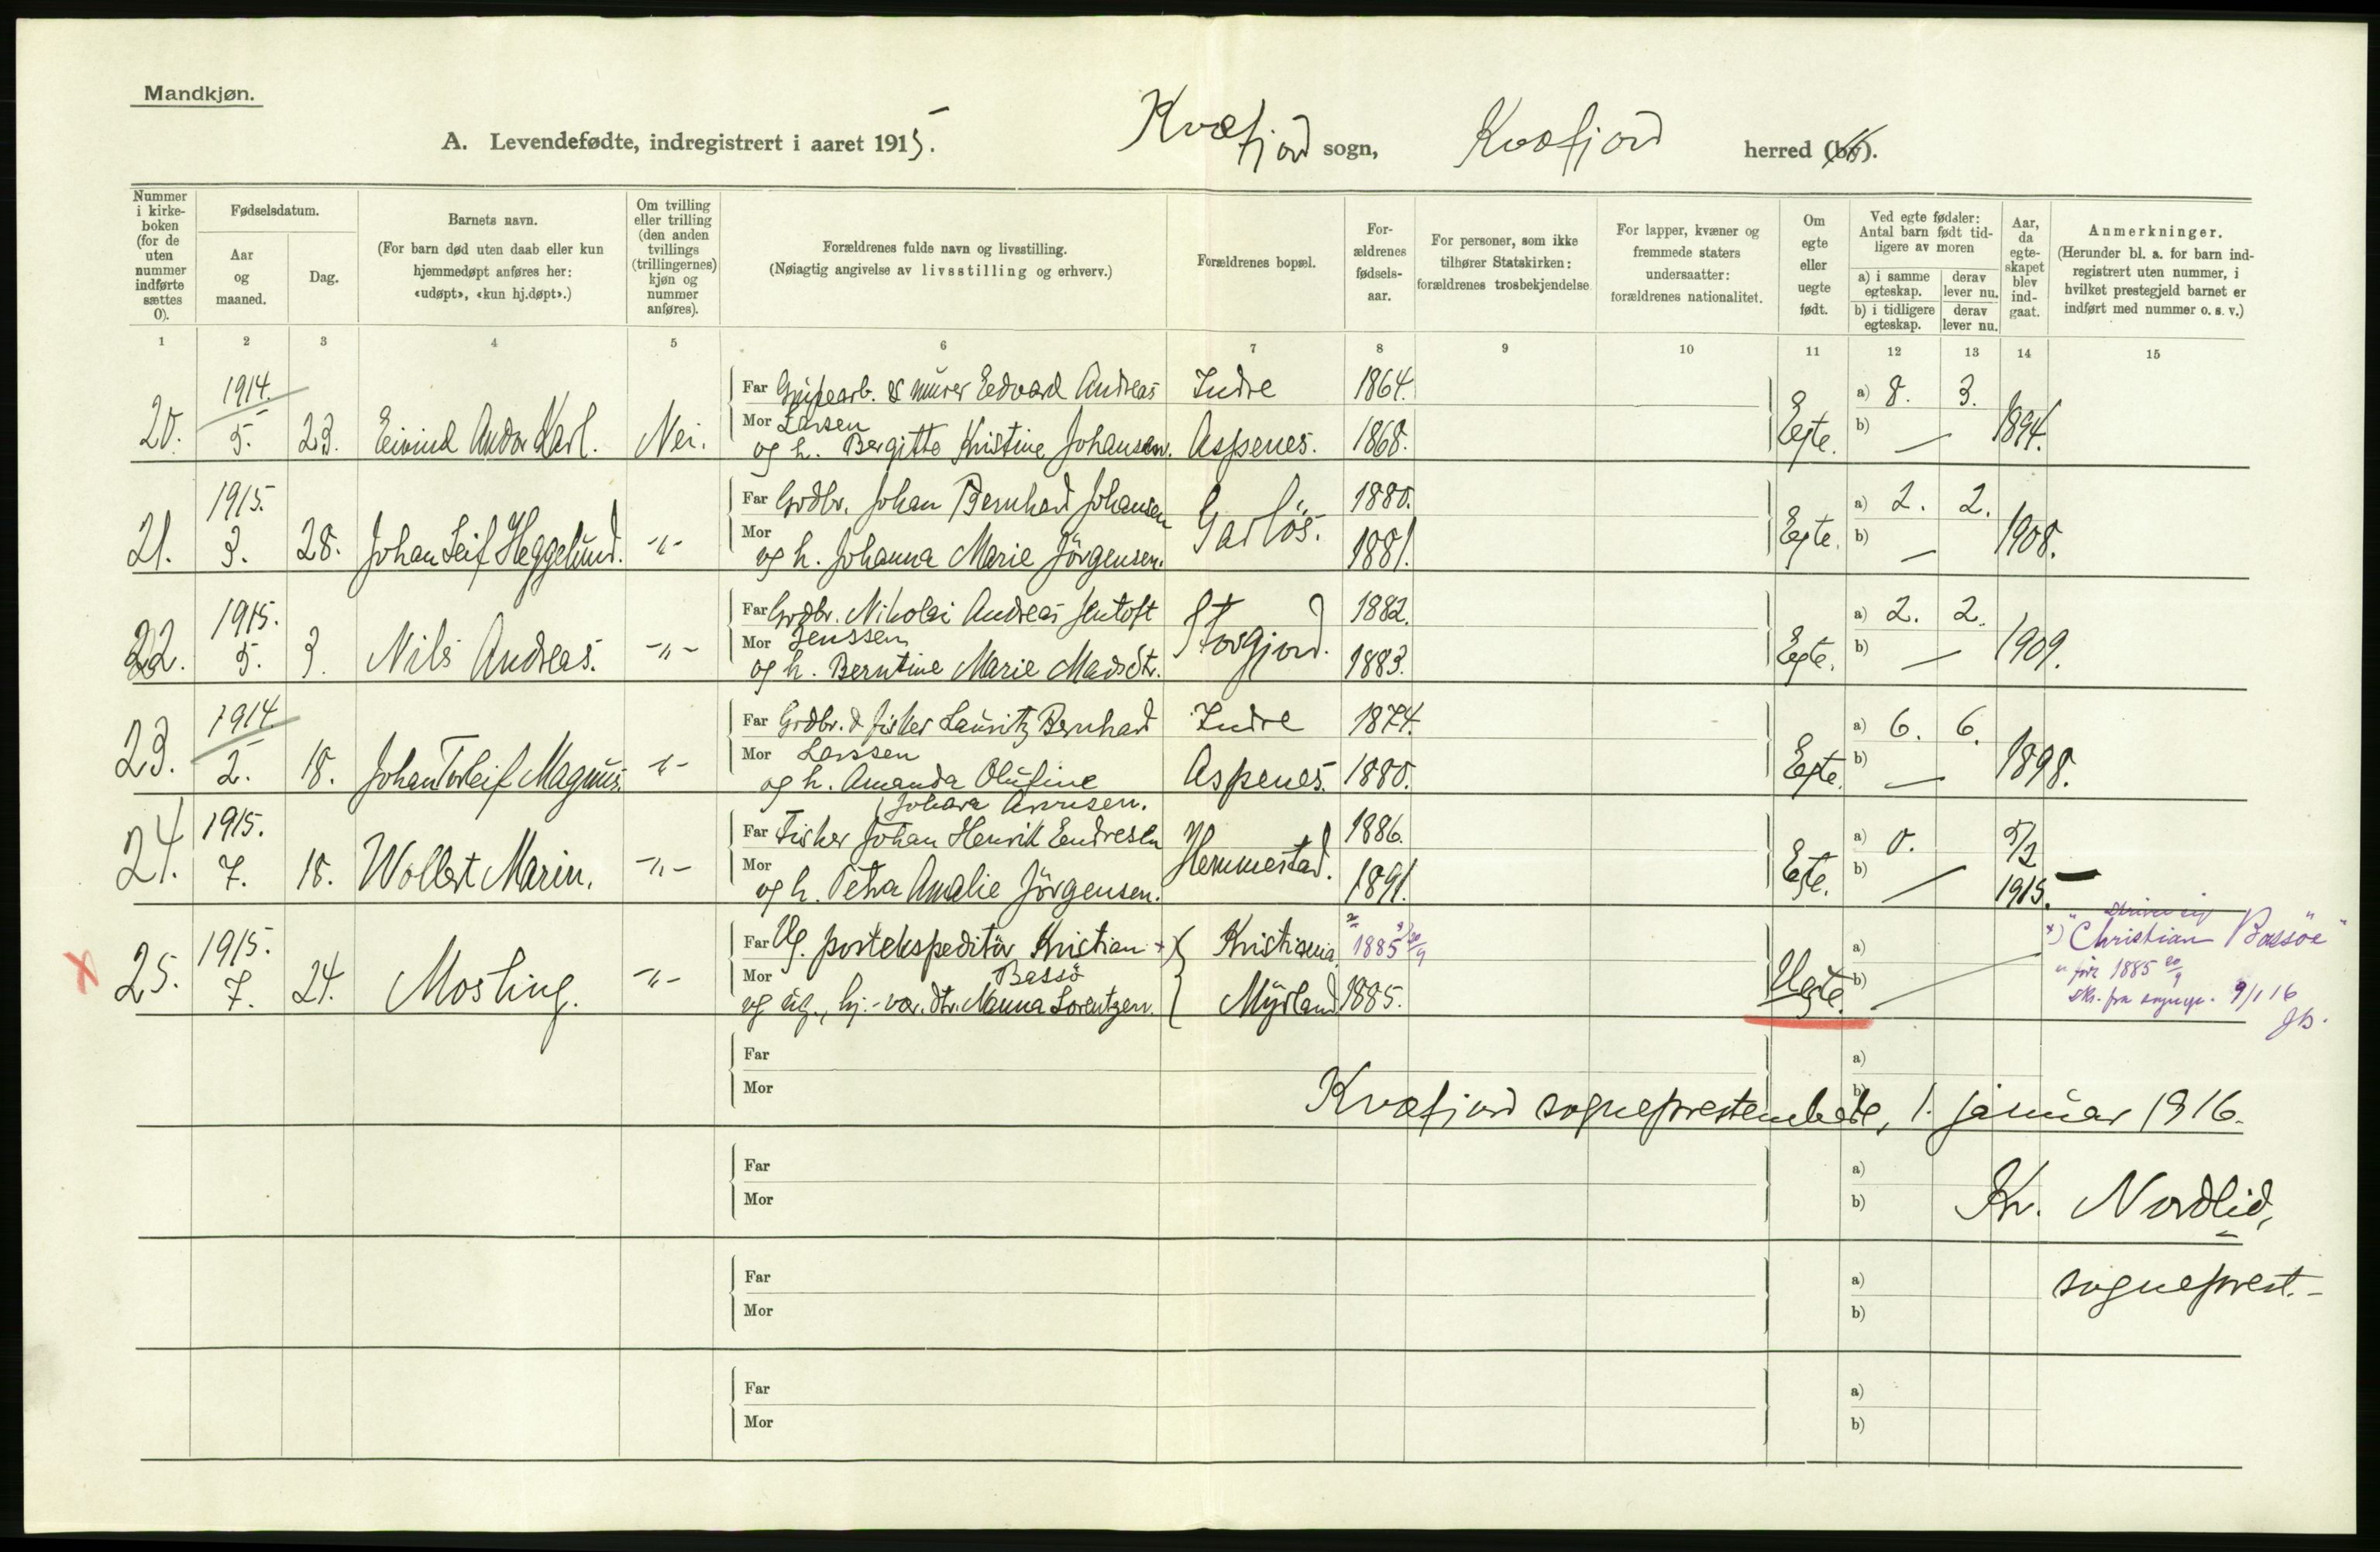 Mandkjøn.
A. Levendefødte, indregistrert i aaret 1915. Kvæfjord sogn, Kvæfjord herred (by).
Nummer i kirke-boken (for de uten nummer indførte sættes 0).
Fødselsdatum.
Aar og maaned.
Dag.
Barnets navn.
(For barn død uten daab eller kun hjemmedøpt anføres her: «udøpt», «kun hj.døpt».)
Om tvilling eller trilling (den anden tvillings (trillingernes) kjøn og nummer anføres).
Forældrenes fulde navn og livsstilling.
(Nøiagtig angivelse av livsstilling og erhverv.)
Forældrenes bopæl.
For-ældrenes fødsels-aar.
For personer, som ikke tilhører Statskirken: forældrenes trosbekjendelse
For lapper, kvæner og fremmede staters undersaatter: forældrenes nationalitet.
Om egte eller uegte født.
Ved egte fødsler: Antal barn født tid-ligere av moren
a) i samme egteskap. derav lever nu.
b) i tidligere egteskap. derav lever nu.
Aar, da egte-skapet blev ind-gaat.
Anmerkninger.
(Herunder bl. a. for barn ind-registrert uten nummer, i hvilket prestegjeld barnet er indført med nummer o. s. v.)
1 2 3 4 5 6 7 8 9 10 11 12 13 14 15
20. 1914. 5. 23. Eivind Andor Karl. Nei.
Far Grubearb. & murer Edvard Andreas Indre 1864. a) 8. 3.
Mor Larsen
og h. Bergitte Kristine Johansen. Aspenes. 1868. Egte. b) — 1894.
21. 1915. 3. 28. Johan Leif Heggelund. -"-
Far Grdbr. Johan Bernhard Johansen 1880. a) 2. 2.
Mor og h. Johanna Marie Jörgensen. 1881. Egte. b) — 1908.
22. 1915. 5. 3. Nils Andreas. -"-
Far Grdbr. Nikolai Andreas Jentoft 1882. a) 2. 2.
Mor Jenssen
og h. Berntine Marie Madsdtr. Storgjord. 1883. Egte. b) — 1909.
23. 1914 2. 18. Johan Torleif Magnus. -"-
Far Grdbr. & fisker Lauritz Bernhard Indre 1874. a) 6. 6.
Mor Larssen
og h. Amanda Olufine Aspenes. 1880. Egte. b) — 1898.
24. 1915. 7. 18. Wollert Marin. -"-
Far Fisker Johan Henrik Endresen Hemmestad. 1886. a) 0. 5/2
Mor og h. Petra Amalie Jörgensen. 1891. Egte. b) — 1915.
x 25. 1915. 7. 24. Mosling. -"-
Far Ug. postekspeditör Kristian x) Kristiania. 1885 20/9
Mor Bassö
og ug., hj.-vær. dtr. Nanna Lorentzen. Myrland 1885. Uegte. a) b)
skriver sig
x) "Christian Bassöe"
1885 20/9
9/1 16
Kvæfjord sogneprestembede, 1. januar 1916.
Kr. Nordlid,
sogneprest.-
Far a)
Mor b)
Far a)
Mor b)
Far a)
Mor b)
Far a)
Mor b)